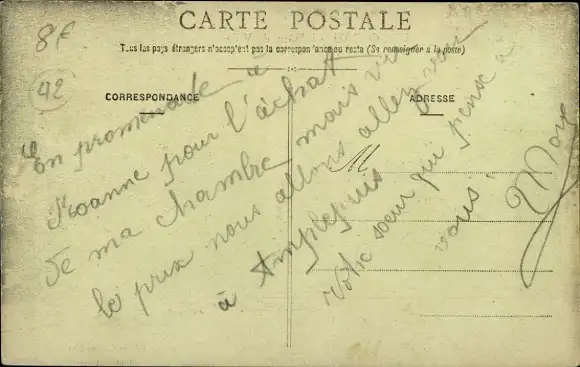 8f
42
CARTE POSTALE
Tous les pays étrangers n'acceptent pas la correspondance au recto (Se renseigner à la poste)
CORRESPONDANCE
ADRESSE
M
En promenade à
Roanne pour l'achat
de ma chambre mais vu
le prix nous allons aller voir
à Amplepuis
Votre soeur qui pense à
vous.